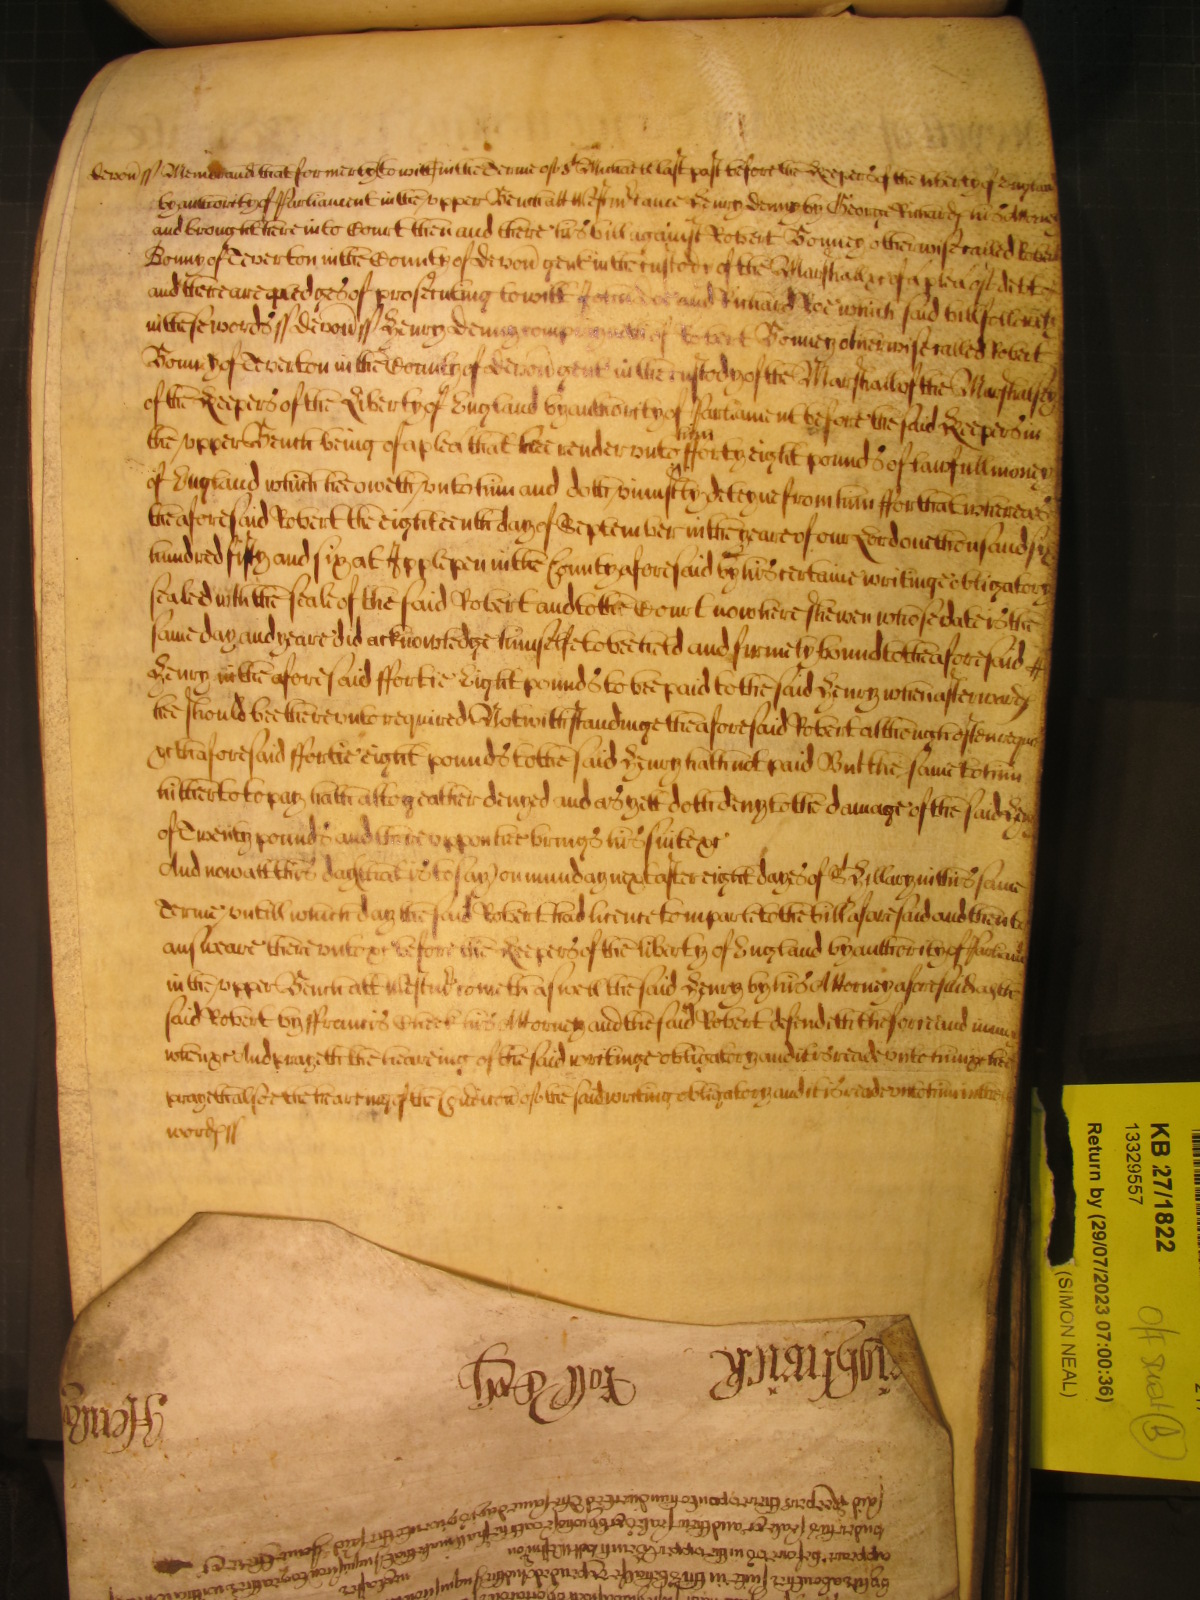 devon ss Memorand that formerly to witt in the Terme of St Michaell last past before the Keepers of the liberty of England
by authority of Parliament in the upper Bench att Westm came Henry Denny by George Richards his Attorney
and brought here into Court then and there his bill against Robert Bonney otherwise called Robert
Bonny of Teverton in the County of Devon gent in the custody of the Marshall &c of a plea of debt
and there are pledges of prosecuting to witt John Doe and Richard Roe which said bill followeth
in these words ss Devon ss Henry Denny complaines of Robert Bonney otherwise called Robert
Bonny of Teverton in the County of Devon gent in the custody of the Marshall of the Marshalsey
of the Keepers of the Liberty of England by authority of Parliament before the said Keepers in
the upper Bench being of a plea that hee render unto him fforty eight pounds of lawfull money
of England which hee oweth unto him and doth uniustly deteyne from him ffor that whereas
the aforesaid Robert the eighteenth day of September in the yeare of our Lord one thousand six
hundred fifty and six at Applepen in the County aforesaid by his certaine writinge obligatory
sealed with the seale of the said Robert and to the Court now here shewen whose date is the
same day and yeare did acknowledge himselfe to bee held and firmely bound to the aforesaid
Henry in the aforesaid ffortie Eight pounds to bee paid to the said Henry when afterwards
hee should bee thereunto required Notwithstandinge the aforesaid Robert although often
&c the aforesaid ffortie eight pounds to the said Henry hath not paid But the same to him
hitherto to pay hath altogeather denyed and as yett doth deny to the damage of the said
of Twenty pounds and thereuppon hee brings his suite &c
And now att this day (that is to say) on munday next after eight dayes of St Hillary in this same
Terme untill which day the said Robert had licence to imparle to the bill aforesaid and then to
answeare thereunto &c before the Keepers of the liberty of England by authority of
in the upper Bench att Westm cometh aswell the said Henry by his Attorney aforesaid as the
said Robert by ffrancis Cheek his Attorney and the said Robert defendeth the force and
when &c And prayeth the heareing of the said writinge obligatory and it is reade unto him &c hee
prayeth alsoe the heareing of the of the said writing obligatory and it is reade unto him in these
words ss
KB 27/1822
13329557
Return by (29/07/2023 07:00:36)
(SIMON NEAL)
Roll
Henry
said Keepers thereupon to him directed The same day is given to the said